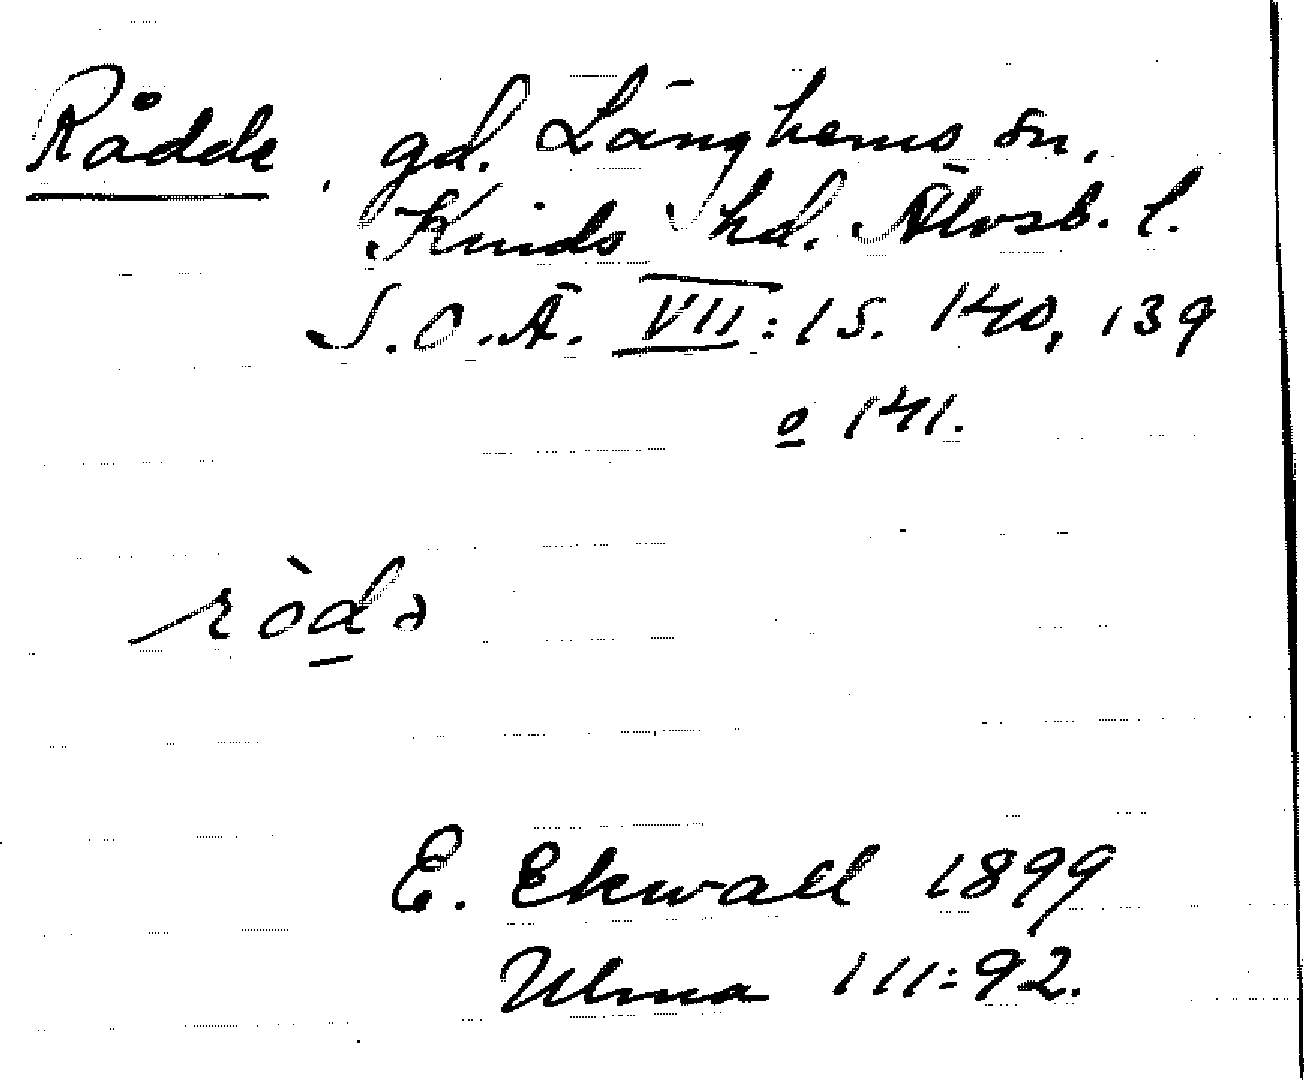 Rådde, gd. Länghems sn,
Kinds hd. Älvsb. l.
S.O.Ä. VII:15. 140, 139
o 141.
ròdə
E. Ekwall 1899
Ulma 111:92.